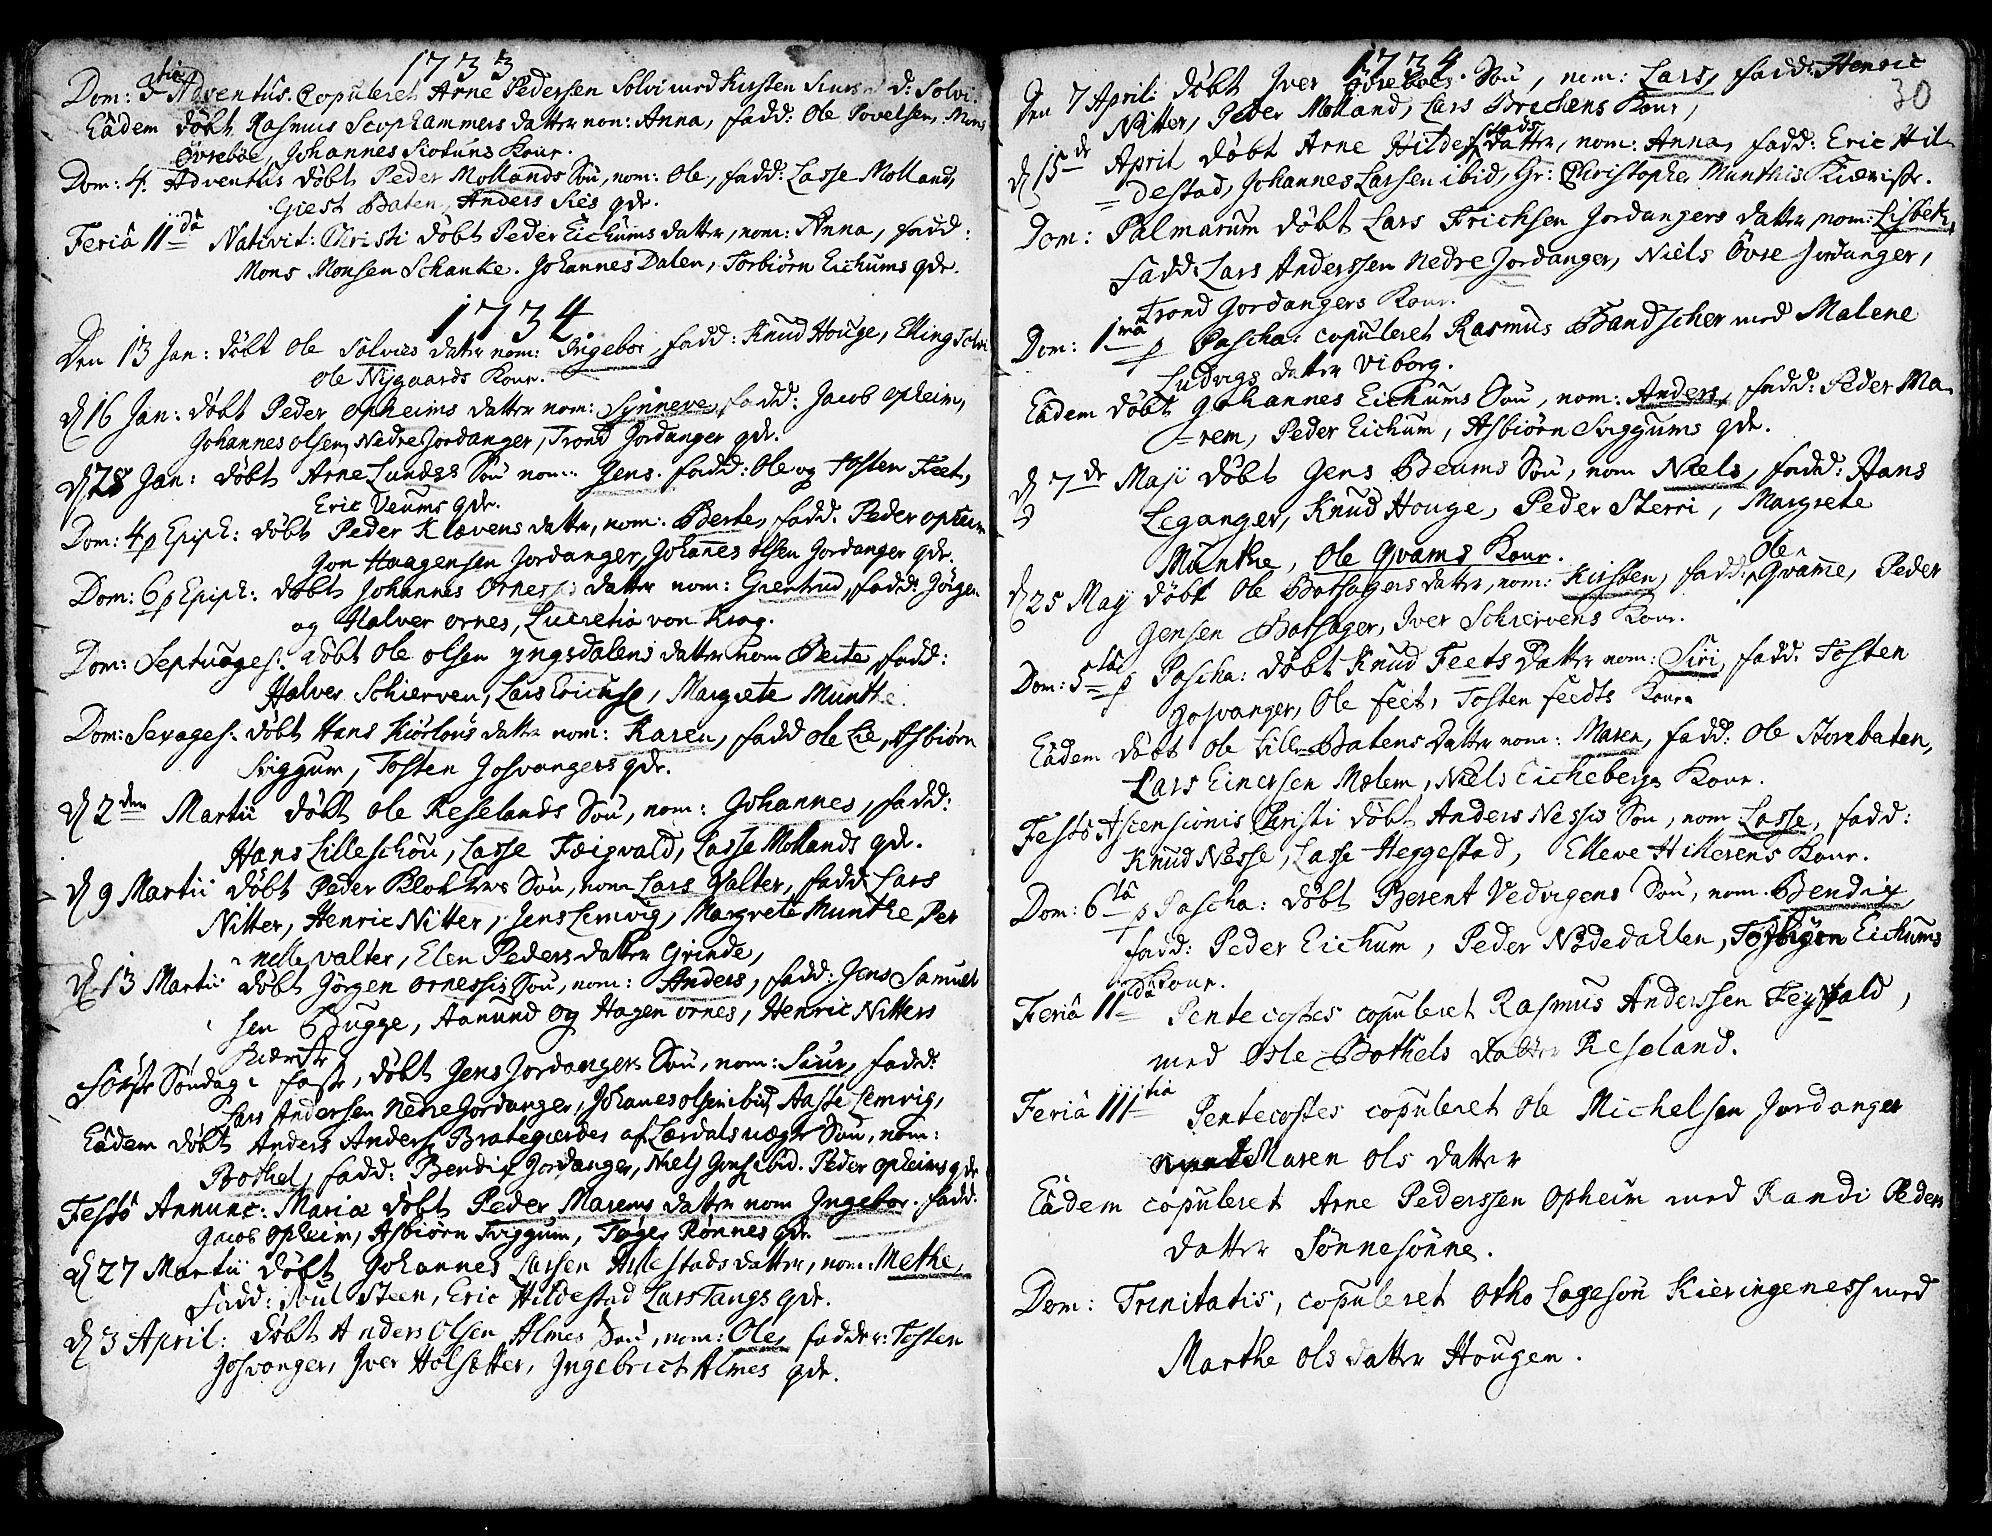 1733
Dom: 3tia Adventus. Copuleret Arne Pedersen Solvi med Kirsten Siurs d: Solvi.
Eâdem döbt Rasmus Scophammers datter nom: Anna, fadd: Ole Povelsen, Mons
Övreböe, Johannes Siotuns Konr.
Dom: 4. Adventus döbt Peder Mollands Sön, nom: Ole, fadd: Lasse Molland,
Giest Baten, Anders Sies qdr.
Feriâ IIdâ Nativit: Christi döbt Peder Eichums datter, nom: Anna, fadd:
Mons Monsen Schanke. Johannes Dalen, Torbiörn Eichums qdr.
1734
Den 13 Jan: döbt Ole Solvies datter nom: Ingebor, fadd: Knud Houge, Elling Solvi
Ole Nÿgaards Konr.
d 16 Jan: döbt Peder Opheims datter nom: Synneve, fadd: Jacob Opheim,
Johannes Olsen Nedre Jordanger, Trond Jordanger qdr.
d 28 Jan: döbt Arne Lundes Sön nom: Jens. fadd: Ole og Tosten Feet,
Eric Veums qdr.
Dom: 4 p Epiph: döbt Peder Klævens datter, nom: Berte, fadd. Peder Opheim
Jon Haagensen Jordanger, Johanes Olsen Jordanger qdr.
Dom: 6 p Epiph: döbt Johannes Ornesses datter nom: Giertrud, fadd: Jörgen
og Halver Ornes, Lucretia von Krog.
Dom: Septuages: döbt Ole Olsen Yngsdalens datter nom Berte, fadd:
Halver Schierven, Lars Erichse, Margrete Munthe.
Dom: Sexages: döbt Hans Kiörlous datter nom: Karen, fadd Ole Lie, Asbiörn
Sviggum, Tosten Gosvangers qdr.
d 2den Martii döbt Ole Reselands Sön, nom: Johannes, fadd:
Hans Lilleschou, Lasse Feigvald, Lasse Mollands qdr.
d 9 Martii döbt Peder Klokkers Sön, nom Lars Valter, fadd: Lars
Nitter, Henric Nitter, Jens Lemvig, Margrete Munthe Per
nelle Valter, Elen Peders datter Grinde,
d 13 Martii döbt Jörgen Ornessis Sön, nom: Anders, fadd: Jens Samuel
sen Bugge, Aanund og Hagen Ornes, Henric Nitters
Kiæriste
Förste Söndag i faste, döbt Jens Jordangers Sön, nom: Siur, fadd:
Lars Andersen Nedre Jordanger, Johanes Olsen ibid, Aasse Lemvig,
Eâdem döbt Anders Anders Brategierdes af Lærdals Sön, nom:
Bothel, fadd: Bendix Jordanger, Niels Jens ibid. Peder Opheims qdr
Festô Annunc: Mariæ döbt Peder Marems datter nom Ingebor. fadd.
Jacob Opheim, Asbiörn Sviggum, Tøger Rønnes qdr.
d 27 Martii döbt Johannes Larsen Hillestads datter, nom: Methe,
Fadd: Poul Steen, Eric Hildestad Lars Tangs qdr.
d 3 April: döbt Anders Olsen Almes Sön, nom: Ole, fadder: Tosten
Gosvanger, Iver Holsetter, Ingebricht Almes qdr.
1734
30
Den 7 April: döbt Iver Övreböes Sön, nom: Lars, fadd: Henric
Nitter, Peder Molland, Lars Brechens Konr,
d 15de April döbt Arne Hildestads datter, nom: Anna, fadd: Eric Hil
destad, Johannes Larsen ibid, Hr: Christopher Munthis Kiæriste.
Dom: Palmarum döbt Lars Erichsen Jordangers datter nom: Lisbeth,
fadd: Lars Anderssen Nedre Jordanger, Niels Övre Jordanger,
Trond Jordangers Konr.
Dom: 1ma p Pascha: copuleret Rasmus Bandscher med Malene
Ludvigs datter Viborg.
Eâdem döbt Johannes Eichums Sön, nom: Anders, fadd: Peder Ma
rem, Peder Eichum, Asbiörn Sviggums qdr.
d 7de Maji döbt Jens Beums Sön, nom Niels, fadd: Hans
Leganger, Knud Houge, Peder Sterri, Margrete
Munthe, Ole Qvams Konr.
d 25 Maij döbt Ole Botsagers datter, nom: Kirsten, fadd: Ole Qvame, Peder
Jensen Botsager, Iver Schiervens Konr.
Dom: 5ta p Pascha: döbt Knud Feets Datter nom: Siri, fadd. Tosten
Gosvanger, Ole Feet, Tosten Feedts Konr.
Eâdem döbt Ole Lille Batens datter nom: Maren, fadd: Ole Storebaten,
Lars Einersen Molem, Niels Eichebergs Konr.
Festô Ascensionis Christi döbt Anders Nessis Sön, nom Lasse, fadd:
Knud Nesse, Lasse Heggestad, Elleve Hillerens Konr.
Dom: 6tâ p Pascha: döbt Berent Vedvigens Sön, nom. Bendix
fadd: Peder Eichum, Peder Nodedahlen, Torbiörn Eichums
Konr.
Feriâ IIdâ Pentecostes copuleret Rasmus Anderssen Feigvald,
med Osle Bothels datter Reseland.
Feriâ IIItia Pentecostes copuleret Ole Michelsen Jordanger
Maren Ols datter
Eâdem copuleret Arne Pederssen Opheim med Randi Peders
datter Sönnesönne.
Dom: Trinitatis, copuleret Otho Lagesön Kieringeness med
Marthe Ols datter Hougen.